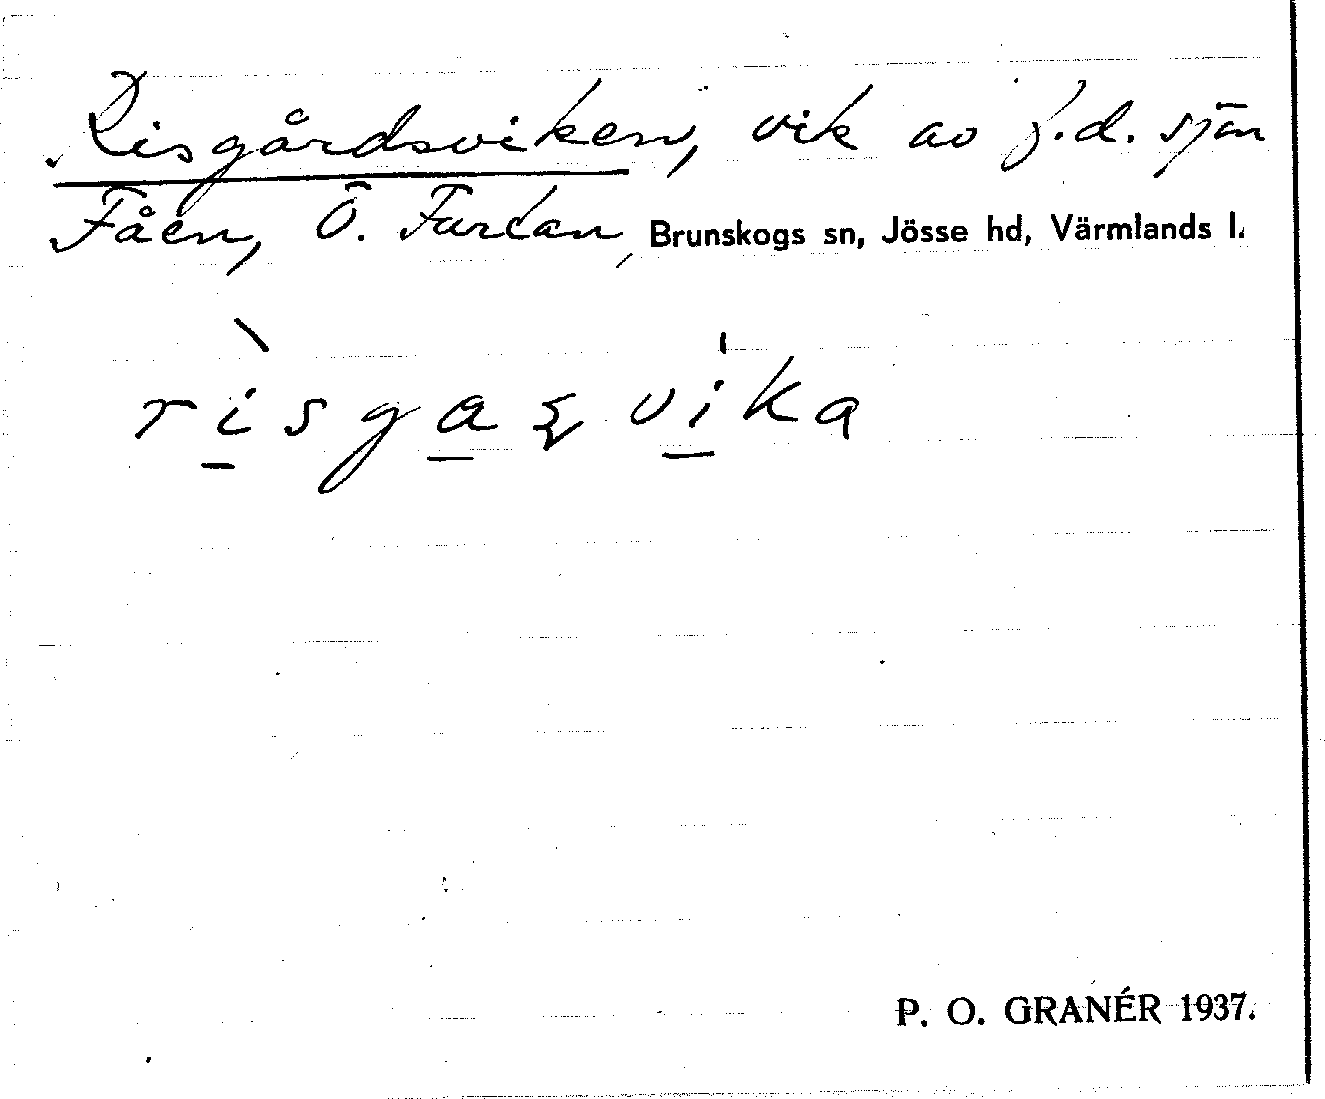 Risgårdsviken, vik av f.d. sjön
Fåen, Ö. Furtan, Brunskogs sn, Jösse hd, Värmlands l.
rìsgaʂvika
P. O. GRANÉR 1937.